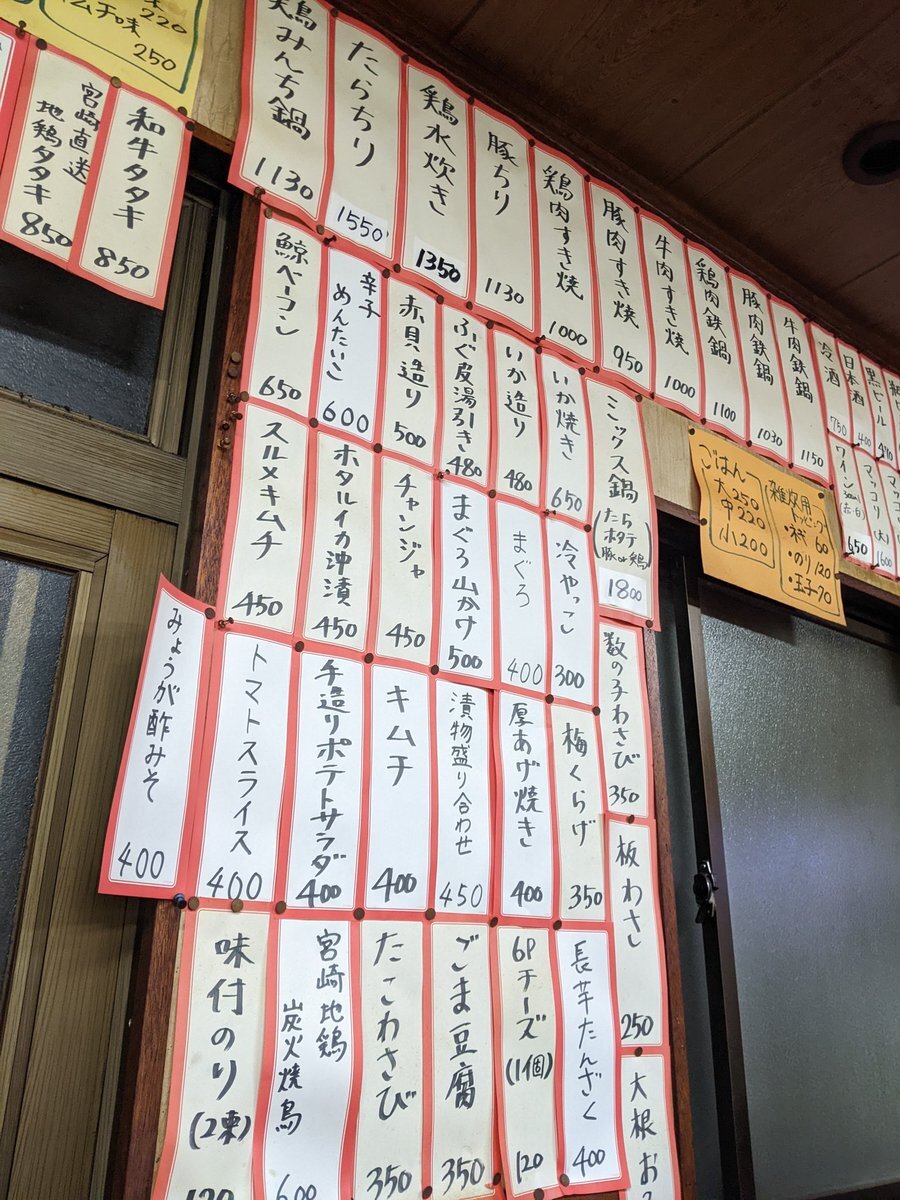 ムチ味
220
250
宮崎直送
地鶏タタキ
850
和牛タタキ
850
鶏みんち鍋
1130
たらちり
1550
鶏水炊き
1350
豚ちり
1130
鶏肉すき焼
1000
豚肉すき焼
950
牛肉すき焼
1000
鶏肉鉄鍋
1100
豚肉鉄鍋
1030
牛肉鉄鍋
1150
冷酒
750
日本酒
400
黒ビール
490
鯨ベーコン
650
辛子
めんたいこ
600
赤貝造り
500
ふぐ皮湯引き
480
いか造り
480
いか焼き
650
ミックス鍋
(たら
ホタテ
豚or鶏)
1800
ごはん
大250
中220
小200
雑炊用
トッピング
・ネギ 60
・のり 120
・玉子 70
ワイン
300ml
(赤・白)
650
マッコリ
(大)
1600
スルメキムチ
450
ホタルイカ沖漬
450
チャンジャ
450
まぐろ山かけ
500
まぐろ
400
冷やっこ
300
数の子わさび
350
みょうが酢みそ
400
トマトスライス
400
手造りポテトサラダ
400
キムチ
400
漬物盛り合わせ
450
厚あげ焼き
400
梅くらげ
350
板わさ
250
味付のり
(2束)
120
宮崎地鶏
炭火焼鳥
600
たこわさび
350
ごま豆腐
350
6Pチーズ
(1個)
120
長芋たんざく
400
大根お